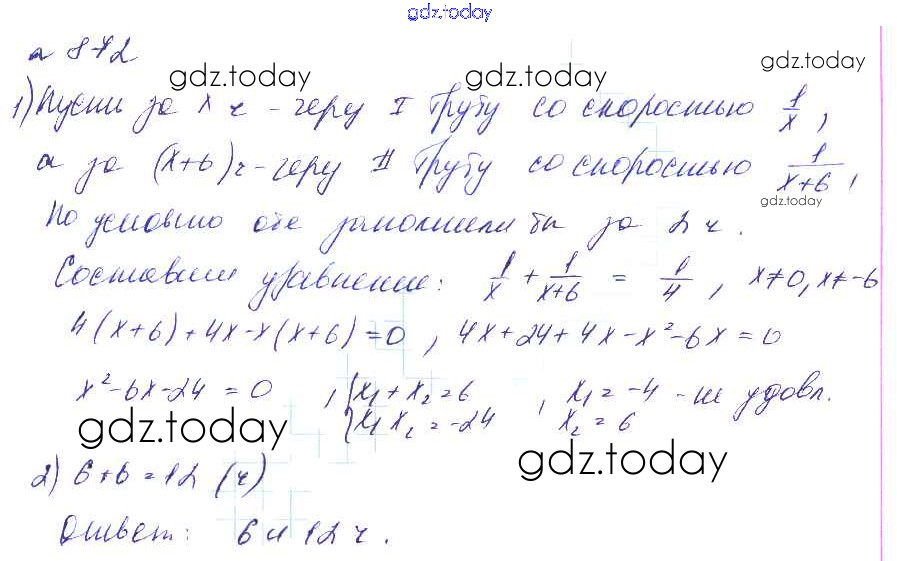 gdz.today
№ 872
gdz.today gdz.today
1) Пусть за x ч - через I трубу со скоростью 1/x,
а за (x+6) ч - через II трубу со скоростью 1/(x+6),
gdz.today
По условию обе заполнили бы за 2 ч.
Составим уравнение: 1/x + 1/(x+6) = 1/4, x≠0, x≠-6
4(x+6)+4x-x(x+6)=0, 4x+24+4x-x²-6x=0
x²-6x-24=0, { x₁+x₂=6 x₁x₂=-24, x₁=-4 - не удовл. x₂=6
gdz.today gdz.today
2) 6+6=12 (ч)
Ответ: 6 и 12 ч.